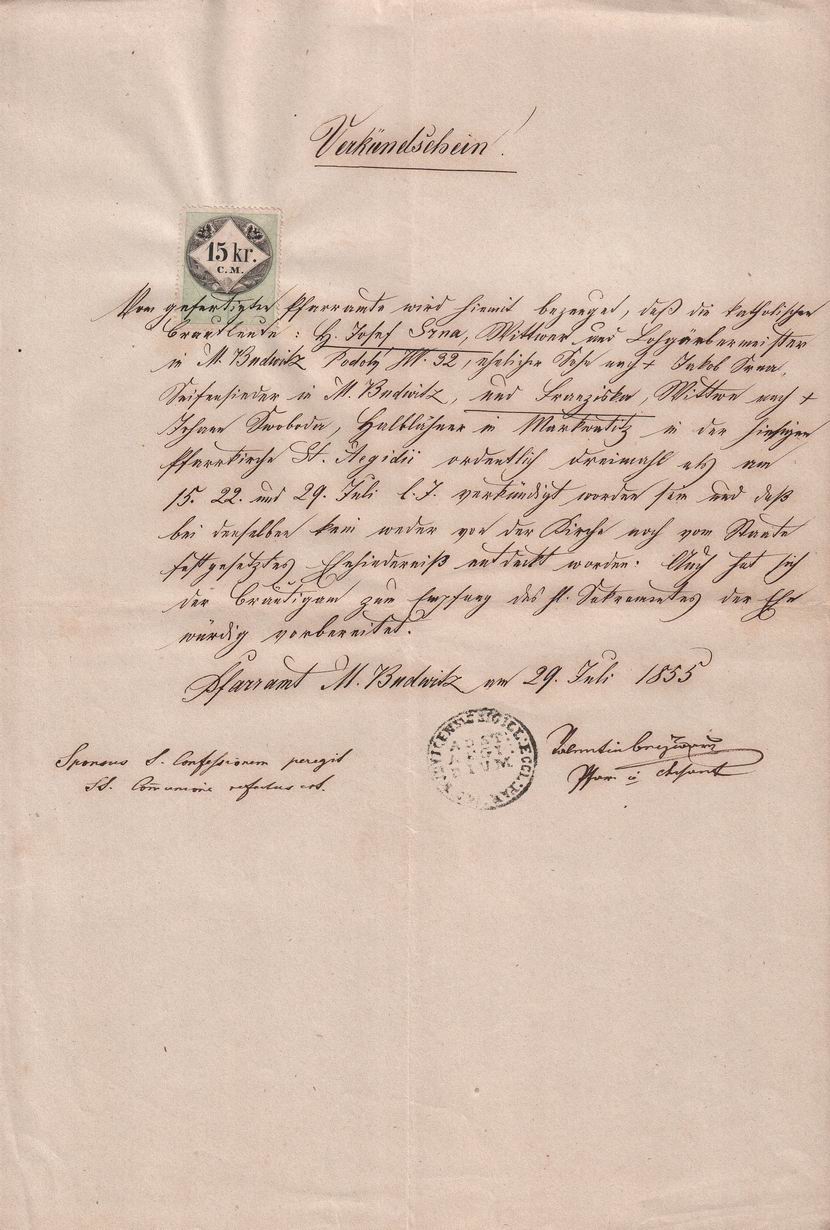 Verkündschein!
15 kr.
C.M.
Vom gefertigten Pfarramte wird hiemit bezeuget, daß die katholischen
Brautleute: H. Josef Srna, Wittwer und Lohgärbermeister
in M. Budwitz Podoly N. 32, ehelicher Sohn nach + Jakob Srna,
Seifensieder in M. Budwitz, und Franziska, Wittwe nach +
Johann Swoboda, Halblähner in Markwatitz in der hiesigen
Pfarrkirche St. Aegidii ordentlich dreimahl als am
15. 22. und 29. Juli l.J. verkündigt worden sein und daß
bei denselben kein weder von der Kirche noch vom Staate
festgesetztes Ehehinderniß entdeckt worden. Auch hat sich
der Bräutigam zum Empfang des hl. Sakramentes der Ehe
würdig vorbereitet.
Pfarramt M. Budwitz am 29. Juli 1855
Sponsus S. Confessionem peregit
SS. Communione refectus est.
SIGILL: ECCL: PAR
Valentin
Pfar. u. Dechant